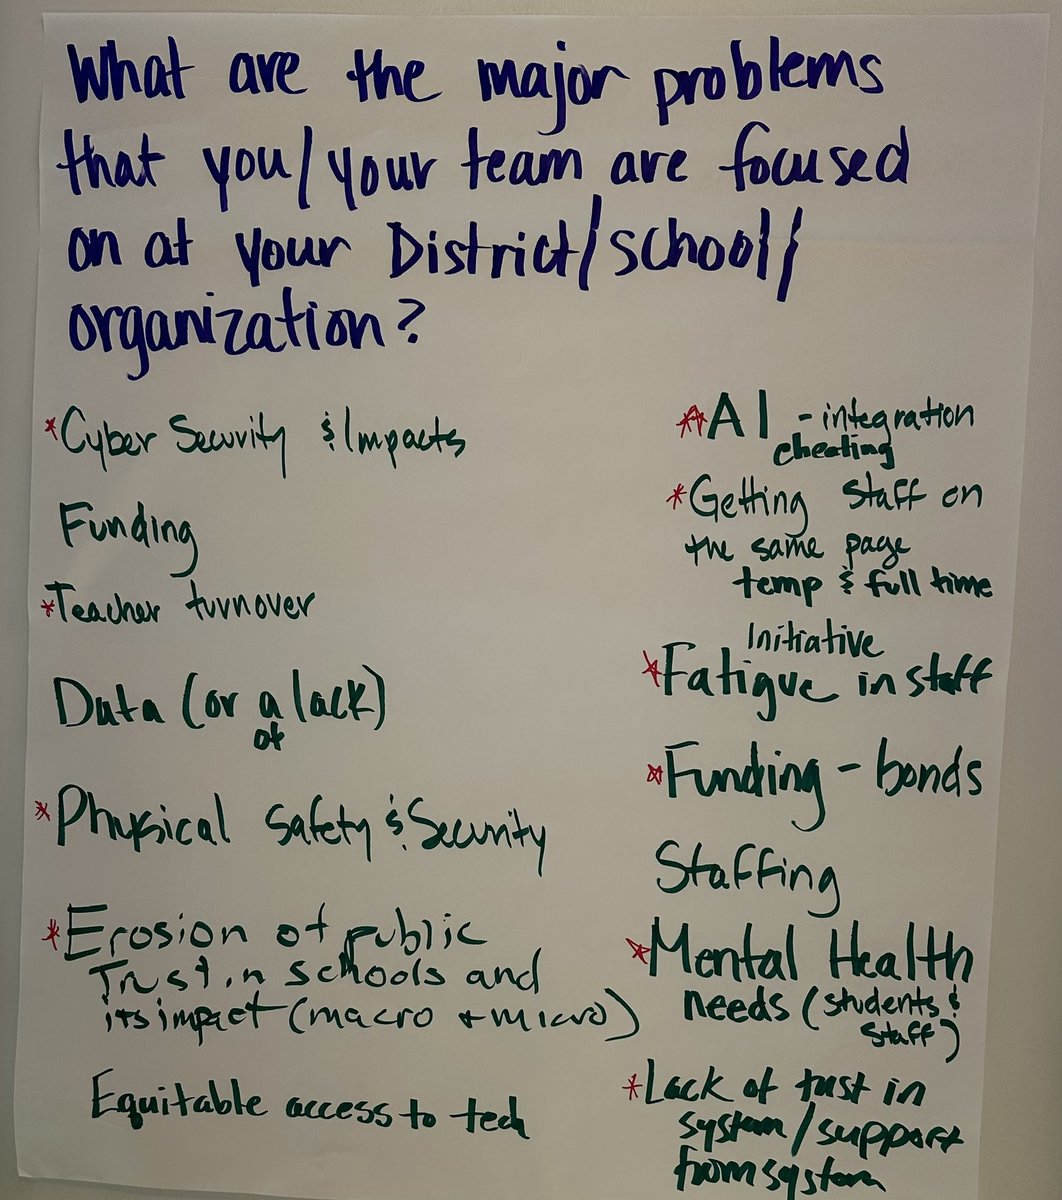 What are the major problems
that you/your team are focused
on at your District/school/
organization?
*Cyber Security & Impacts
Funding
*Teacher turnover
Data (or a lack)
of
*Physical Safety & Security
*Erosion of public
Trust in schools and
its impact (macro + micro)
Equitable access to tech
*AI - integration
cheating
*Getting staff on
the same page
temp & full time
Initiative
*Fatigue in staff
*Funding - bonds
Staffing
*Mental Health
needs (students &
staff)
*Lack of trust in
system/support
from system